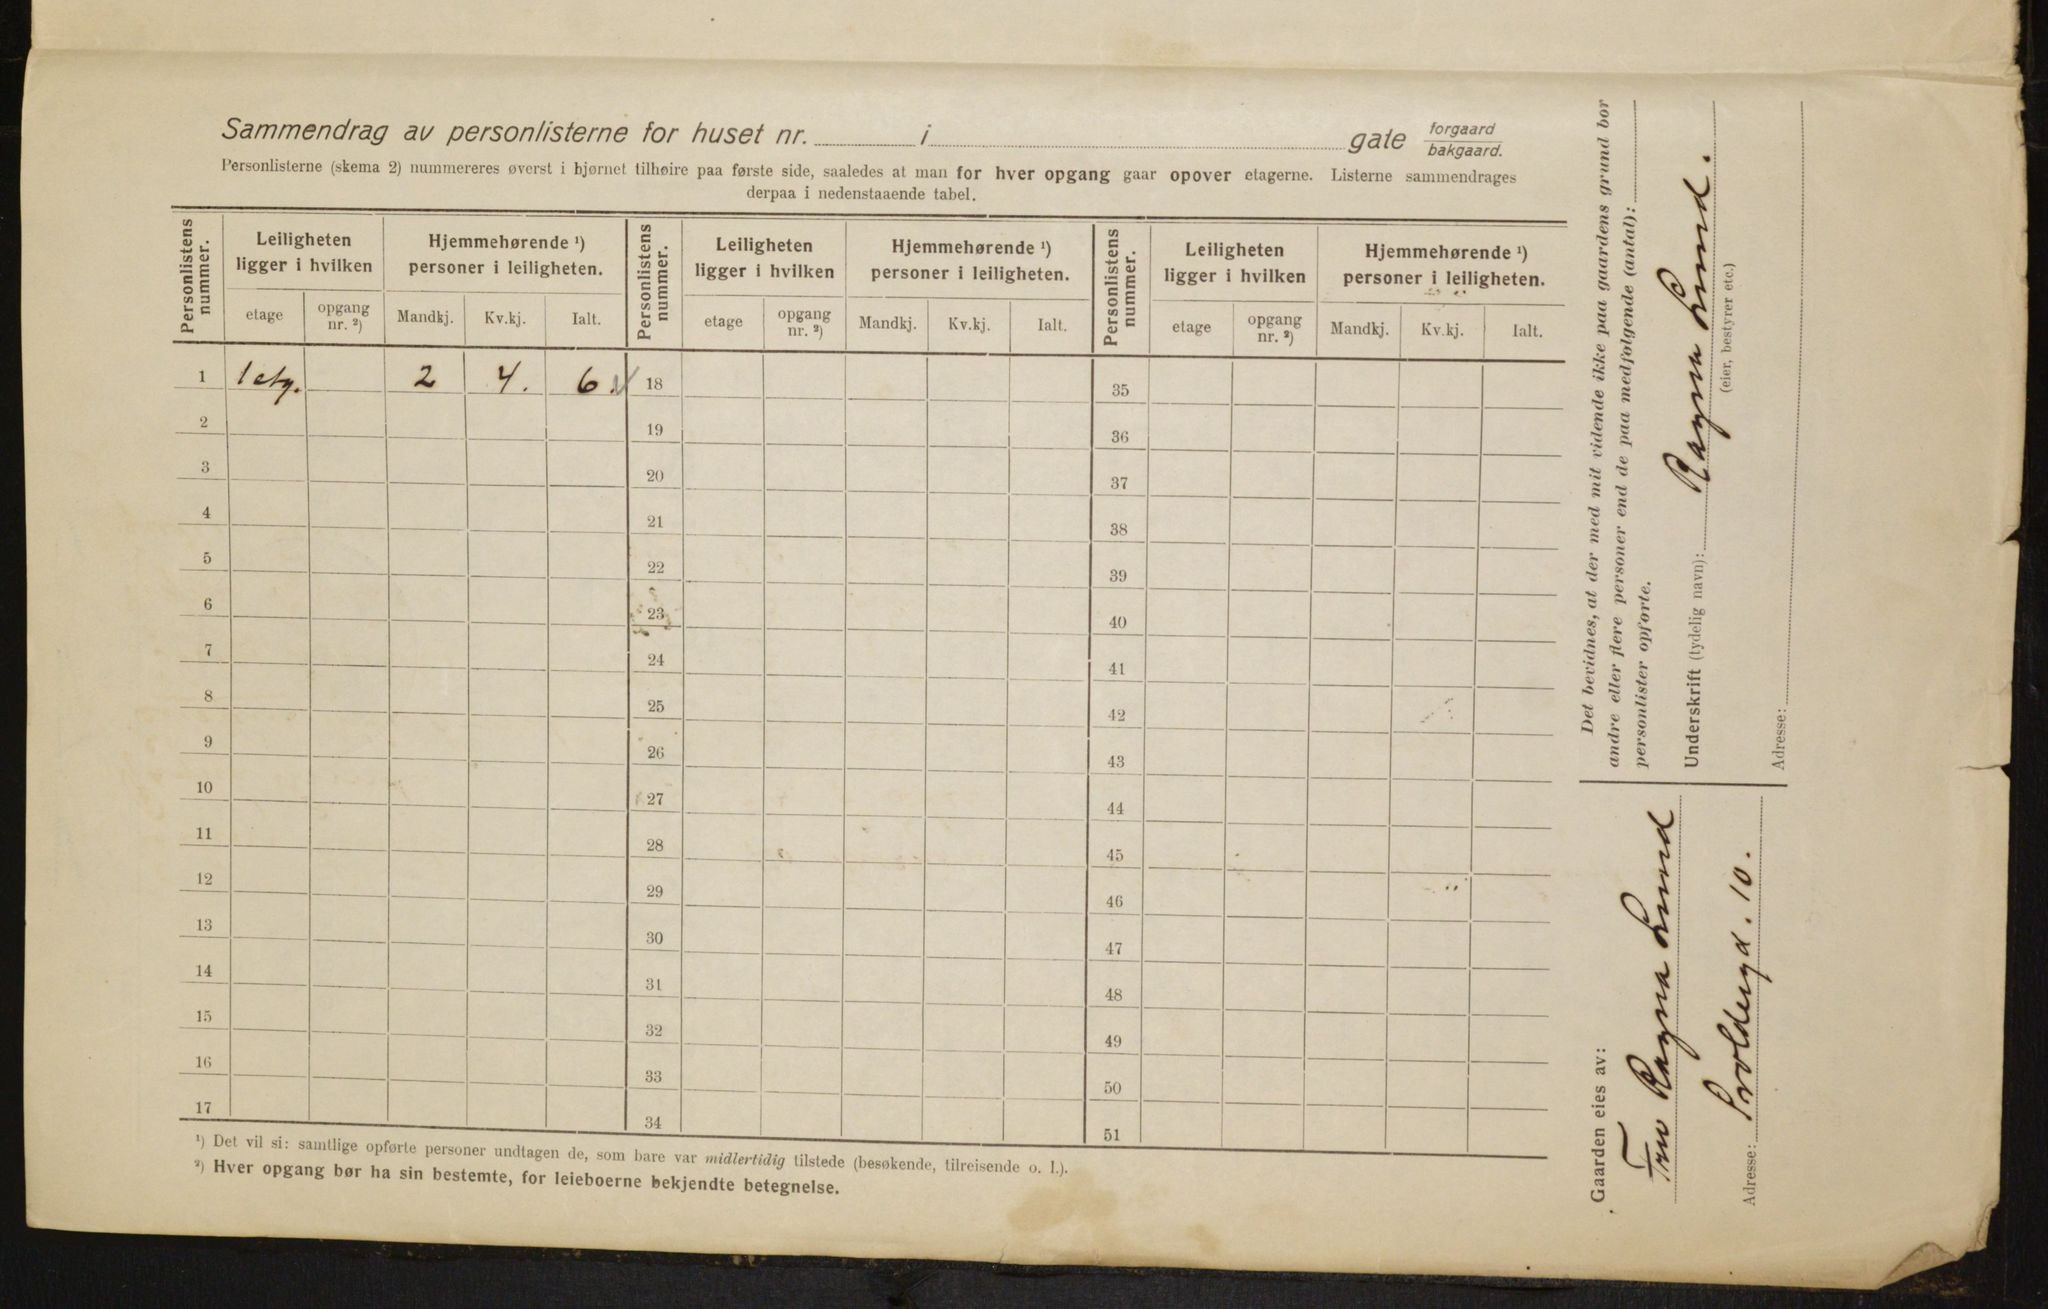 Sammendrag av personlisterne for huset nr. i gate forgaard
bakgaard.
Personlisterne (skema 2) nummereres øverst i hjørnet tilhøire paa første side, saaledes at man for hver opgang gaar opover etagerne. Listerne sammendrages
derpaa i nedenstaaende tabel.
Personlistens nummer. Leiligheten ligger i hvilken Hjemmehørende ¹) personer i leiligheten. Personlistens nummer. Leiligheten ligger i hvilken Hjemmehørende ¹) personer i leiligheten. Personlistens nummer. Leiligheten ligger i hvilken Hjemmehørende ¹) personer i leiligheten.
etage opgang nr. ²) Mandkj. Kv.kj. Ialt. etage opgang nr. ²) Mandkj. Kv.kj. Ialt. etage opgang nr. ²) Mandkj. Kv.kj. Ialt.
1 1 etg. 2 4. 6. 18 35
2 19 36
3 20 37
4 21 38
5 22 39
6 23 40
7 24 41
8 25 42
9 26 43
10 27 44
11 28 45
12 29 46
13 30 47
14 31 48
15 32 49
16 33 50
17 34 51
¹) Det vil si: samtlige opførte personer undtagen de, som bare var midlertidig tilstede (besøkende, tilreisende o. l.).
²) Hver opgang bør ha sin bestemte, for leieboerne bekjendte betegnelse.
Det bevidnes, at der med mit vidende ikke paa gaardens grund bor
andre eller flere personer end de paa medfølgende (antal):
personlister opførte.
Underskrift (tydelig navn): Ragna Lund.
(eier, bestyrer etc.)
Adresse:
Gaarden eies av:
Fru Ragna Lund
Adresse: 10.